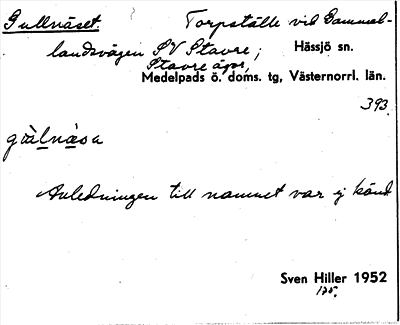 Gullnäset. Torpställe vid Gammel-
landsvägen SV Stavre; Hässjö sn.
Stavre ägor,
Medelpads ö. doms. tg, Västernorrl. län.
393.
Anledningen till namnet var ej känd
Sven Hiller 1952